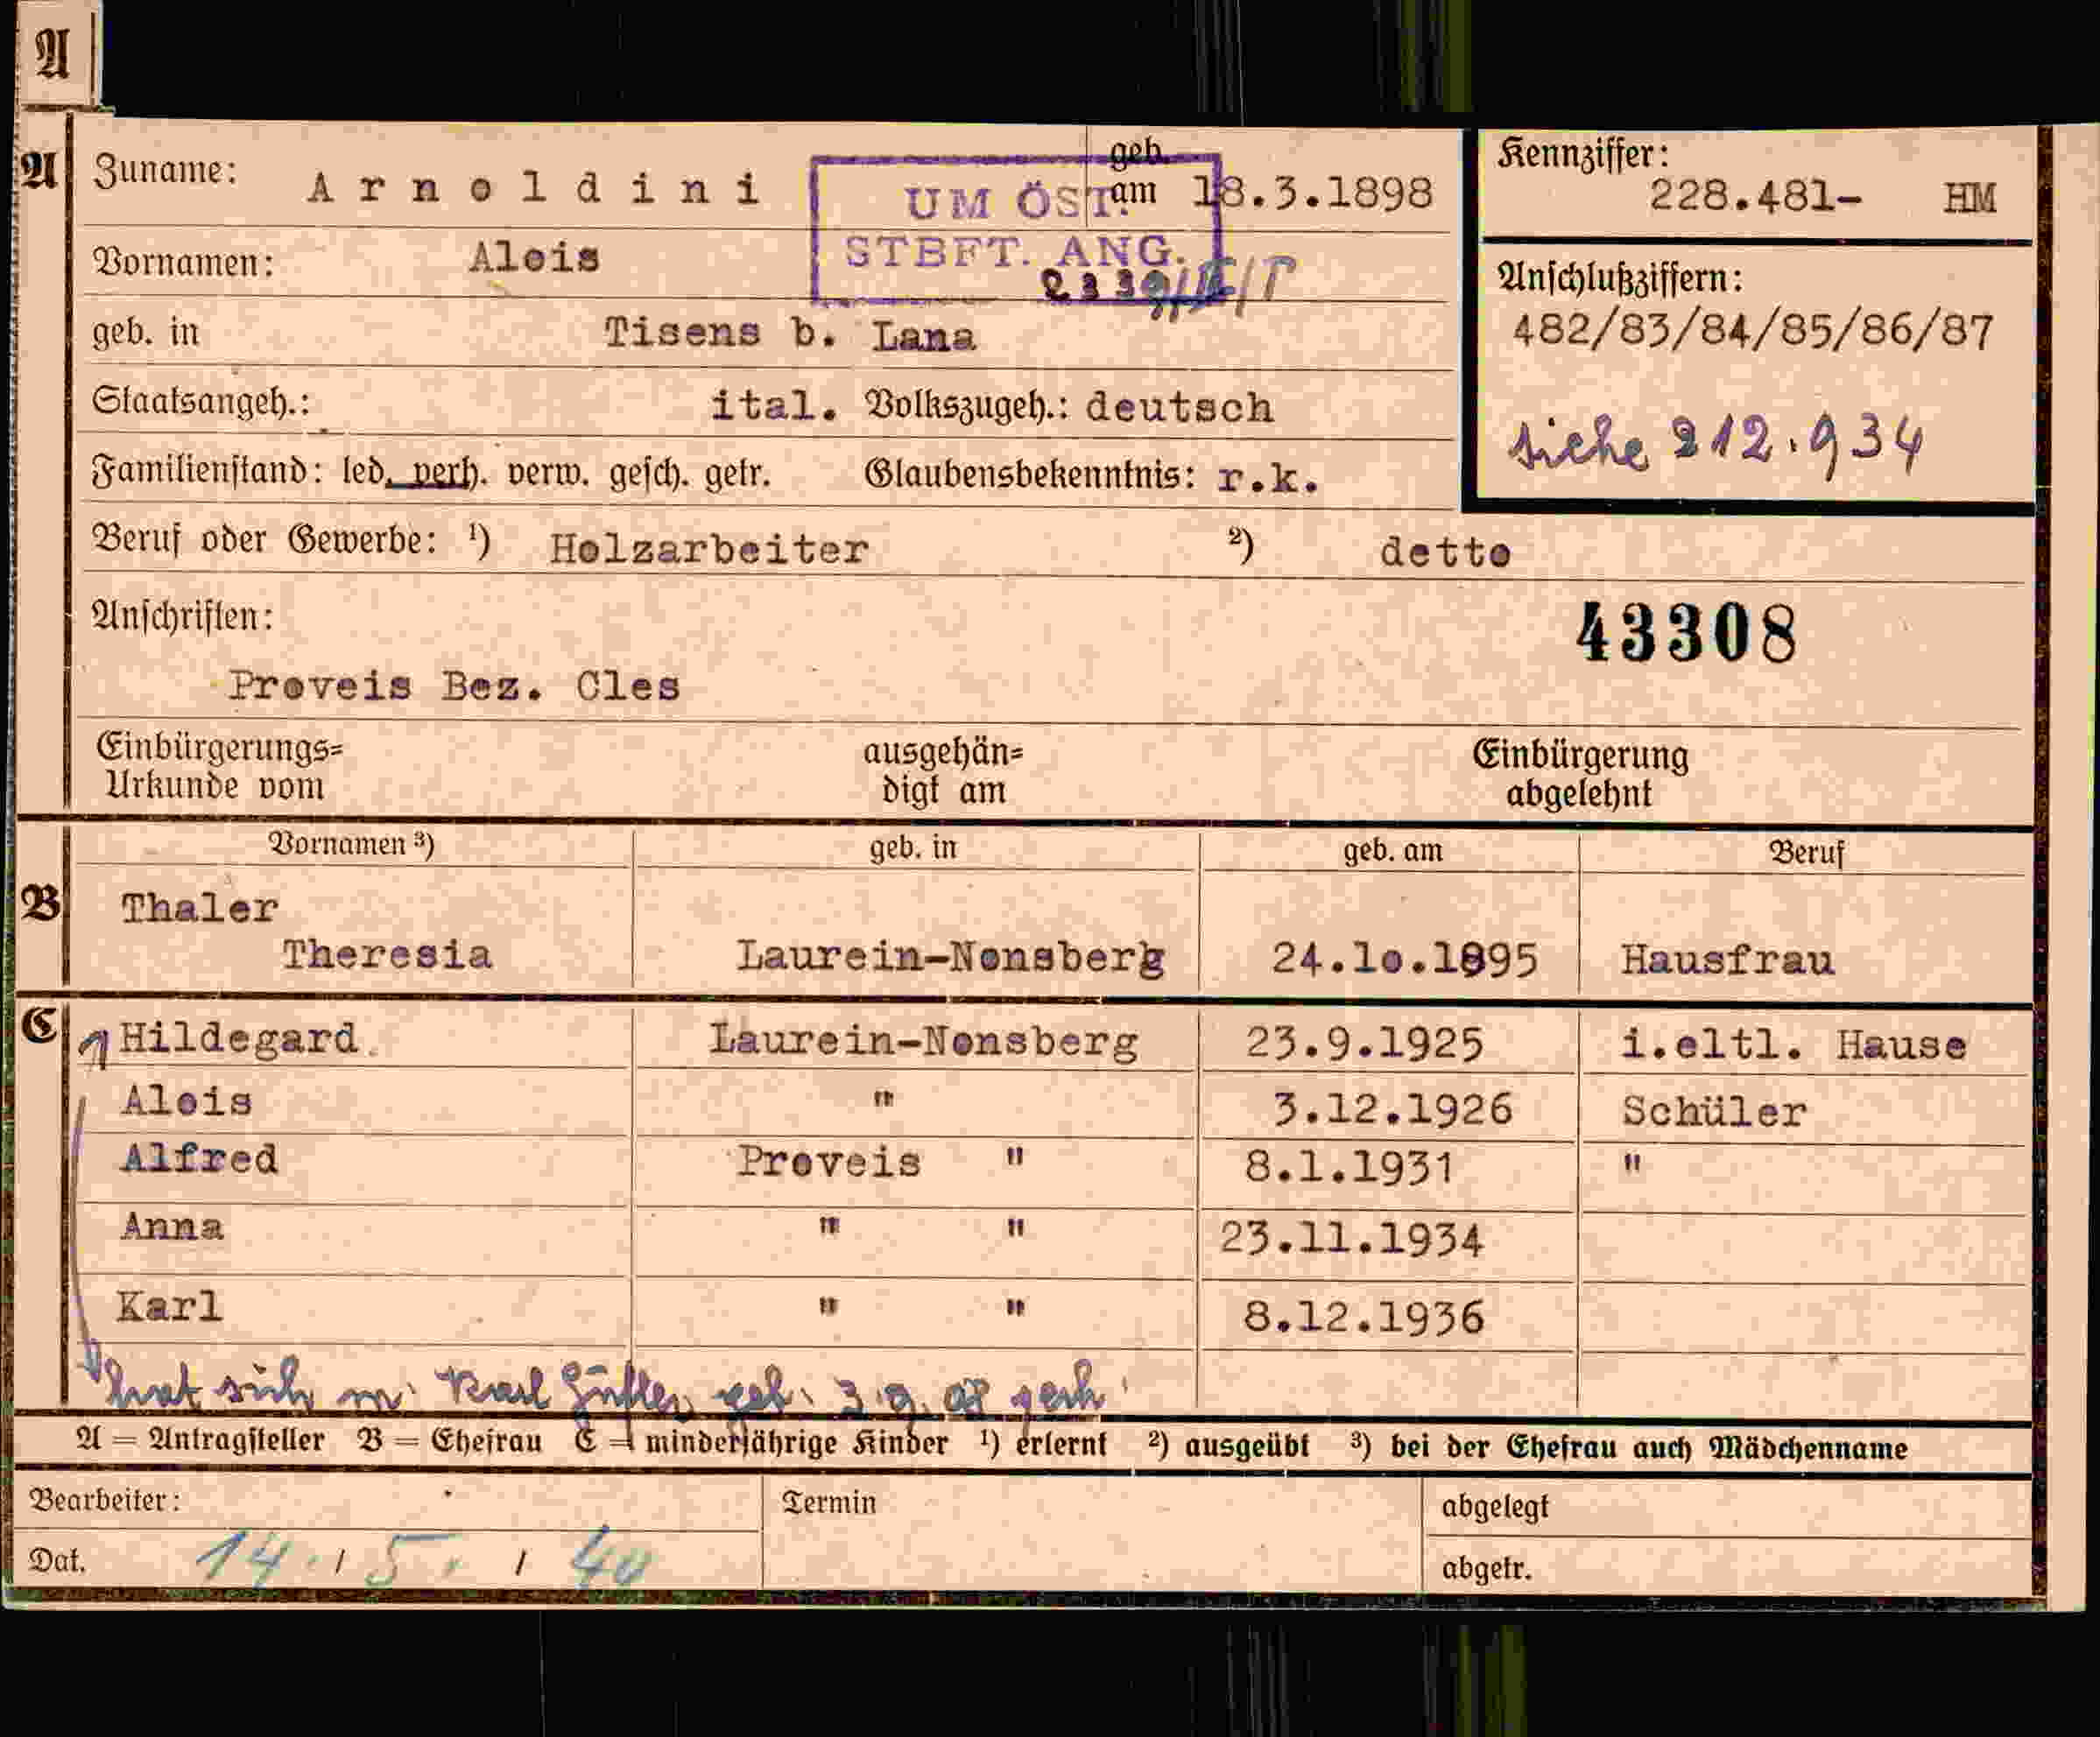 A
A Zuname: Arnoldini geb. am 18.3.1898
Kennziffer: 228.481- HM
UM ÖST.
STBFT. ANG.
Vornamen: Alois
geb. in Tisens b. Lana
Anschlußziffern:
482/83/84/85/86/87
siehe 212.934
Staatsangeh.: ital. Volkszugeh.: deutsch
Familienstand: led. verh. verw. gesch. getr. Glaubensbekenntnis: r.k.
Beruf oder Gewerbe: ¹) Holzarbeiter ²) detto
Anschriften:
43308
Proveis Bez. Cles
Einbürgerungs= ausgehän= Einbürgerung
Urkunde vom digt am abgelehnt
Vornamen ³) geb. in geb. am Beruf
B Thaler
Theresia Laurein-Nonsberg 24.10.1895 Hausfrau
C 1 Hildegard Laurein-Nonsberg 23.9.1925 i.eltl. Hause
Alois " 3.12.1926 Schüler
Alfred Proveis " 8.1.1931 "
Anna " " 23.11.1934
Karl " " 8.12.1936
hat sich m. Karl geb. 3.9.
A = Antragsteller B = Ehefrau C = minderjährige Kinder ¹) erlernt ²) ausgeübt ³) bei der Ehefrau auch Mädchenname
Bearbeiter: Termin abgelegt
Dat. 14. / 5. / 40 abgetr.